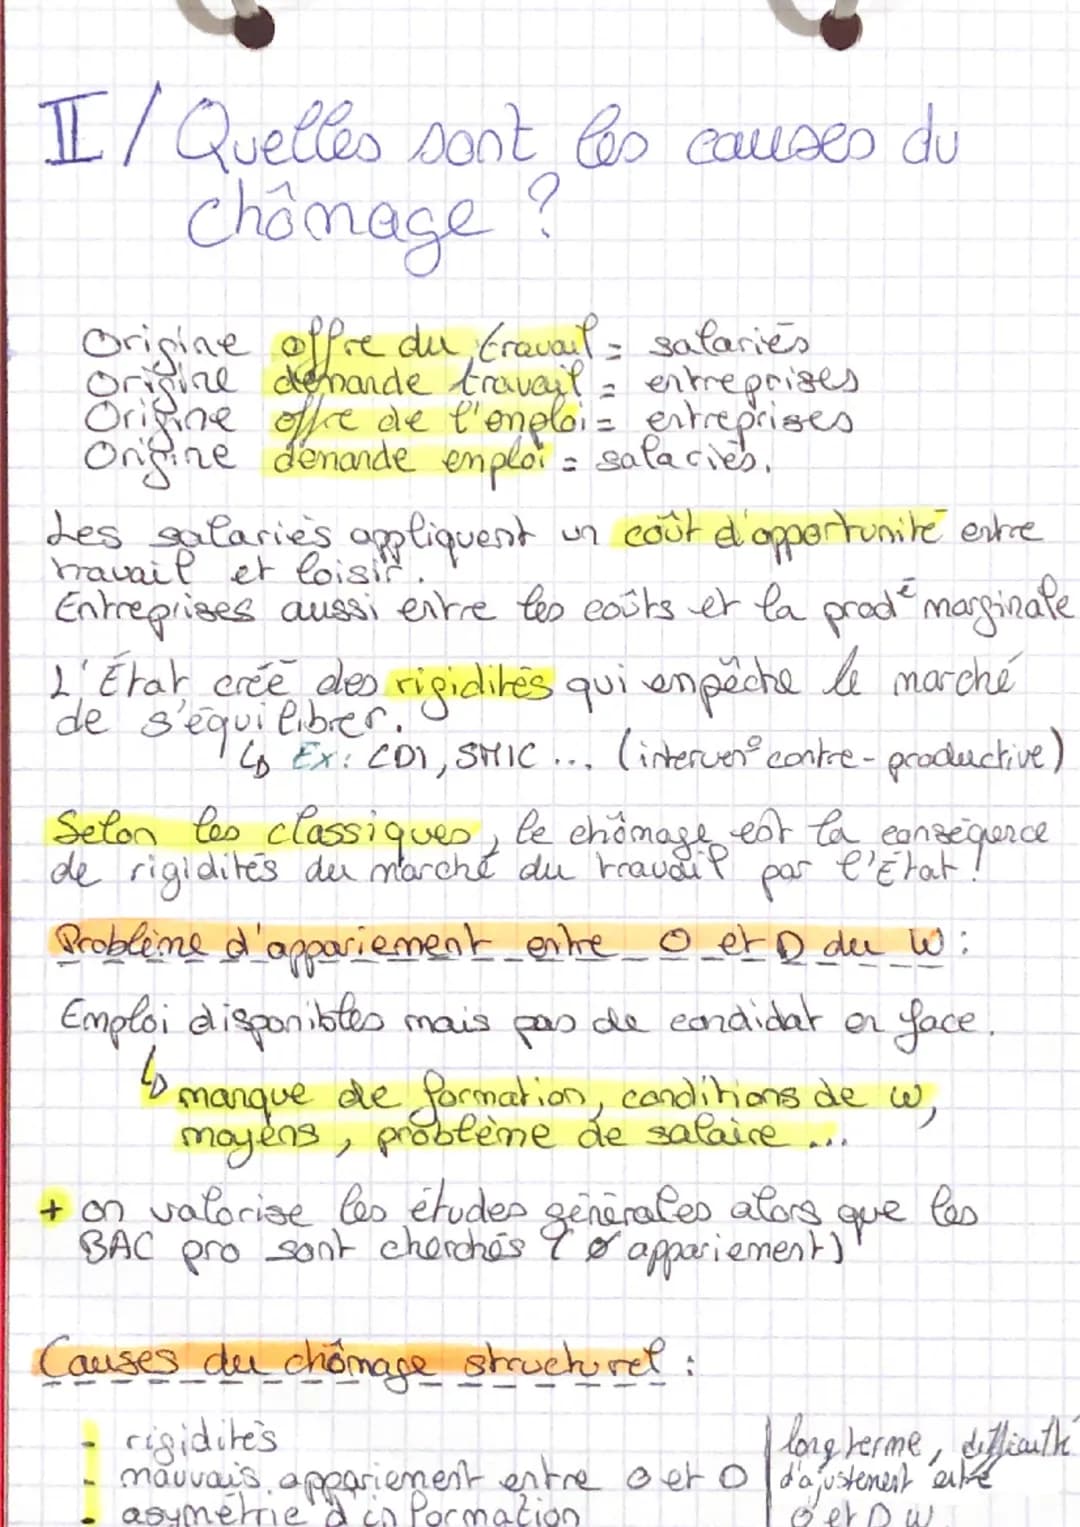 II/ Quelles sont les causes du
chômage ?
Origine offre du travail = salariés
Origine demande travail = entreprises
Origine offre de l'emploi = entreprises
Origine demande emploi = salariés.
Les salariés appliquent un coût d'opportunité entre
travail et loisir.
Entreprises aussi entre les coûts et la prodé marginale
L'État créé des rigidités qui empêche le marché
de s'équilibrer.
↳ Ex: CDI, SMIC ... (interven° contre-productive)
Selon les classiques, le chômage est la conséquence
de rigidités du marché du travail par l'État !
Problème d'appariement entre O et D du W :
Emploi disponibles mais pas de candidat en face.
↳ manque de formation, conditions de w,
moyens, problème de salaire ...
+ on valorise les études générales alors que les
BAC pro sont cherchés (ø appariement)
Causes du chômage structurel :
- rigidités
- mauvais appariement entre O et D
- asymétrie d'information
long terme, difficulté
d'ajustement entre
O et D W.